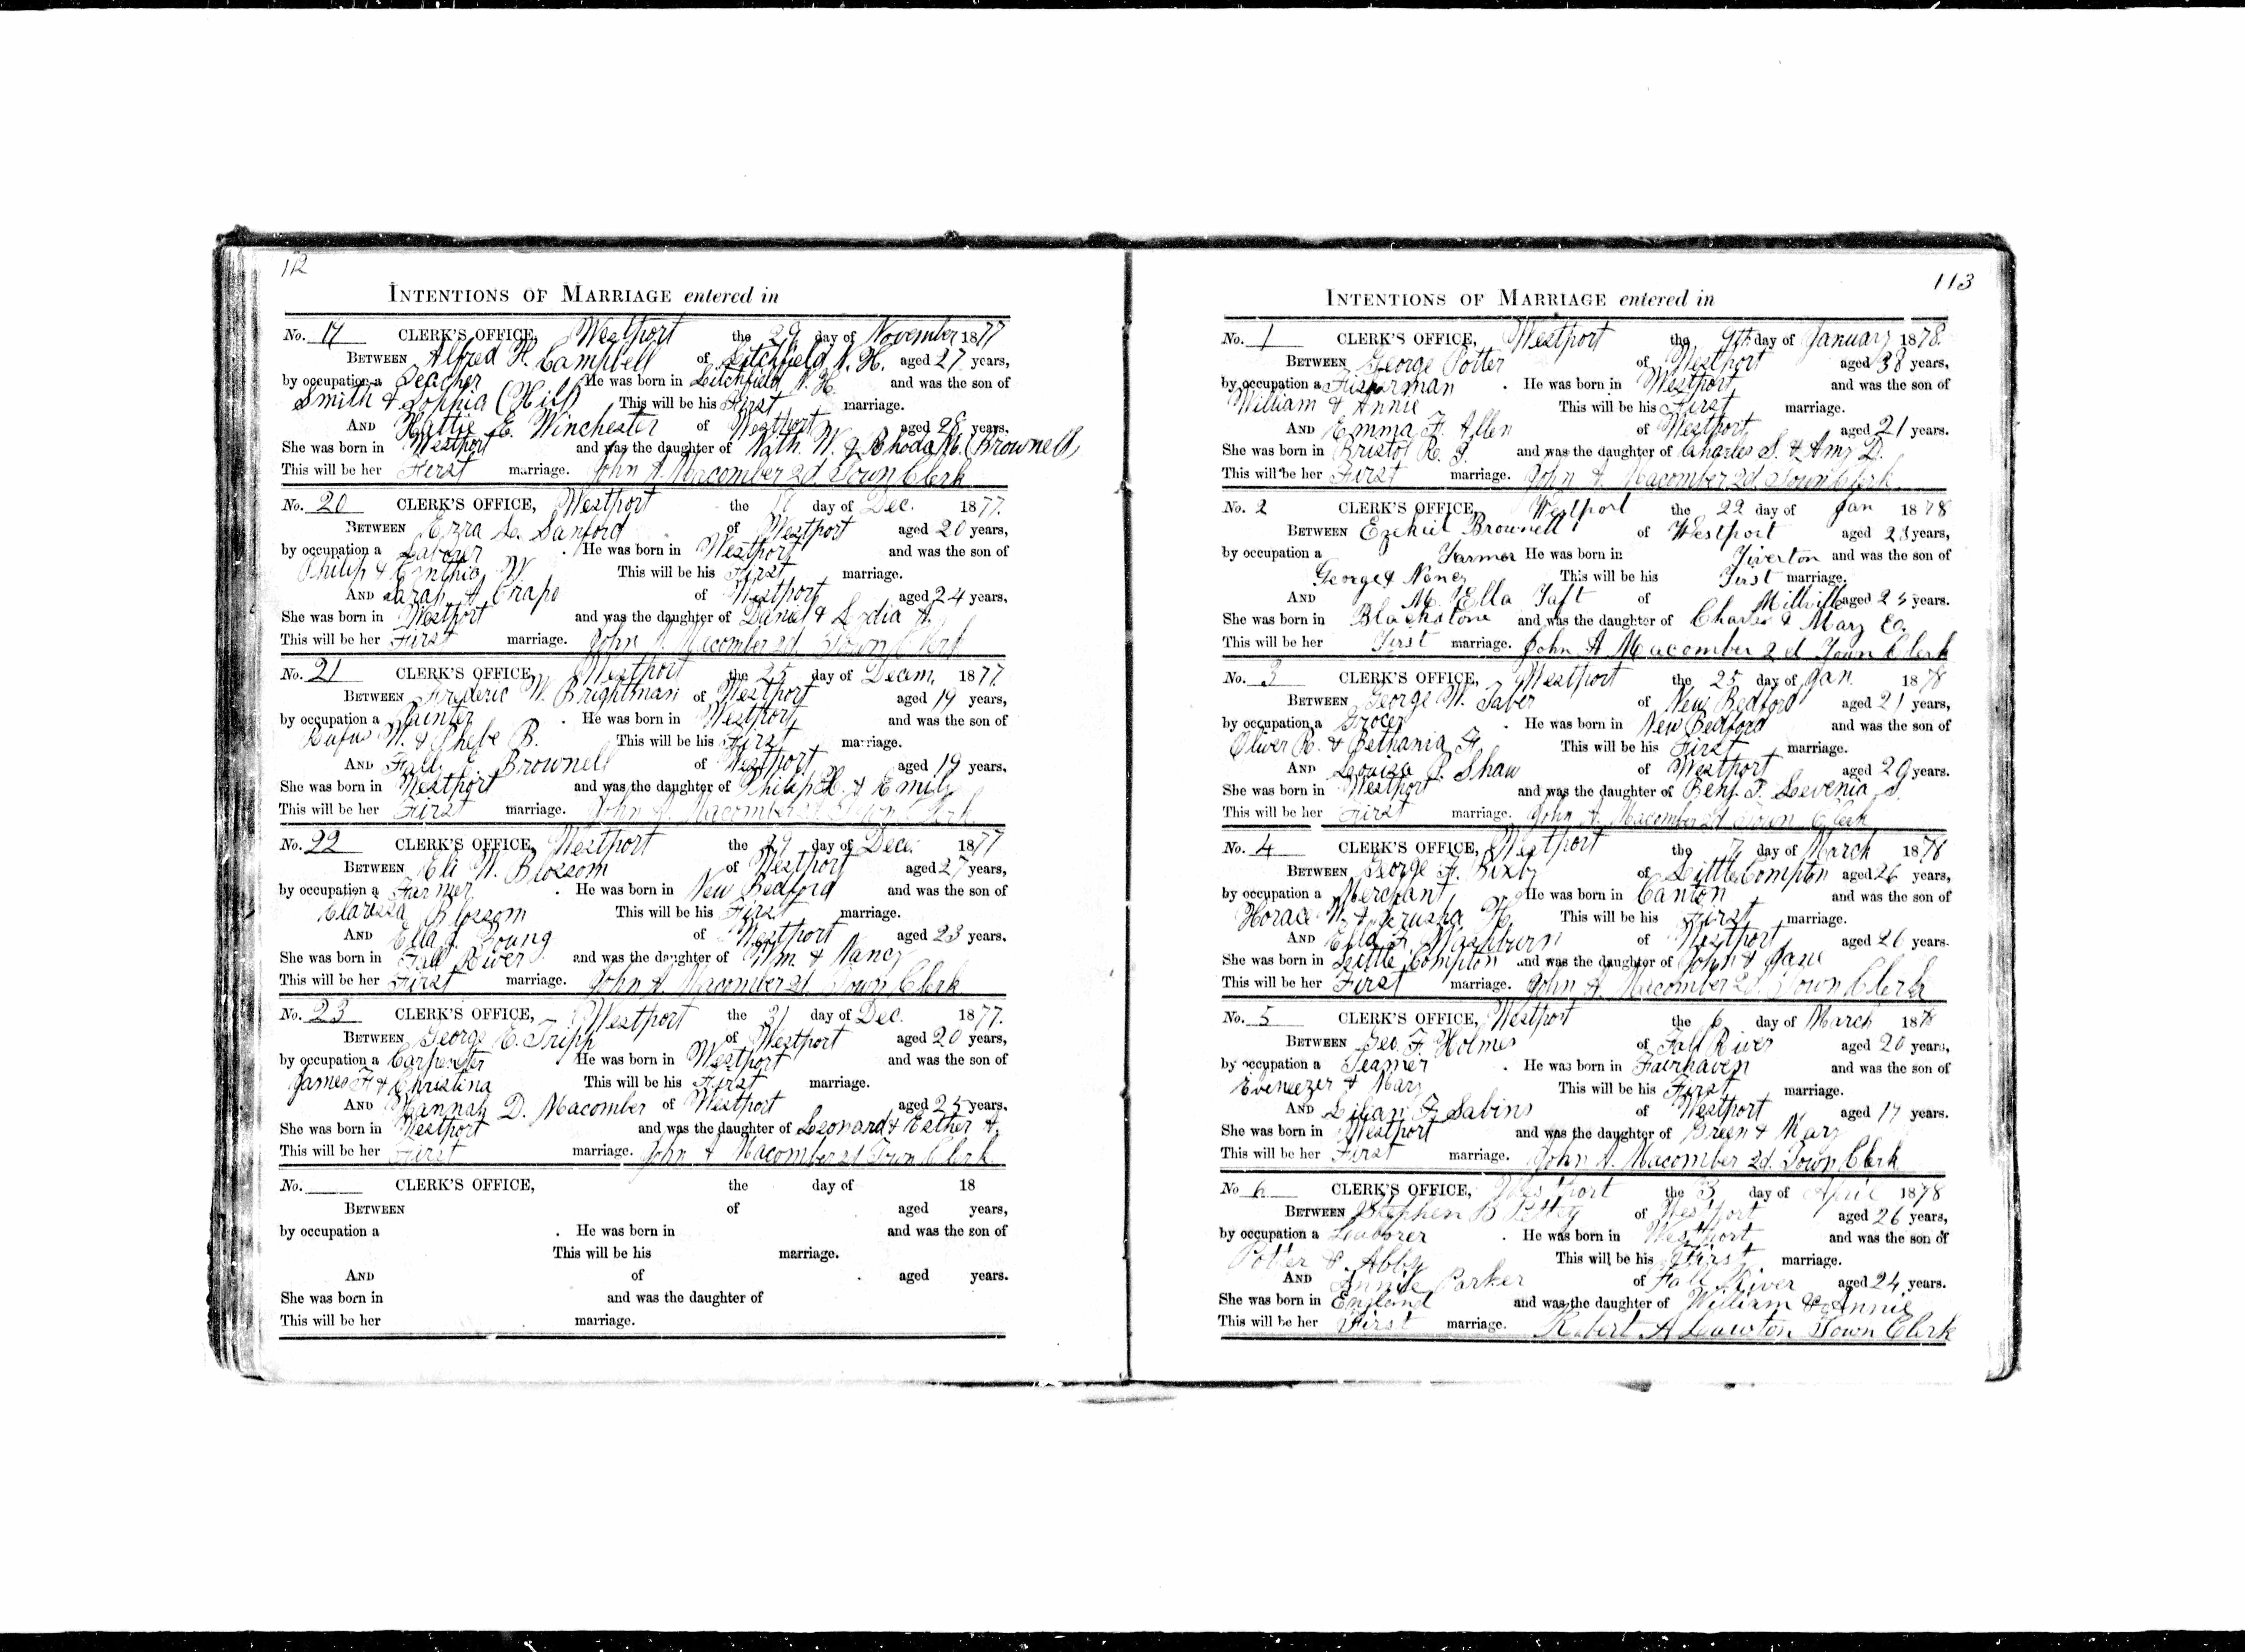 112
INTENTIONS OF MARRIAGE entered in
No. 17 CLERK'S OFFICE, Westport the 29 day of November 1877
BETWEEN Alfred H. Campbell of Litchfield N. H. aged 27 years,
by occupation a Teacher He was born in Litchfield N. H. and was the son of
Smith & Sophia (Hill) This will be his First marriage.
AND Hattie E. Winchester of Westport aged years.
She was born in Westport and was the daughter of Nath. W. & Rhoda M. (Brownell)
This will be her First marriage. John A. Macomber 2d. Town Clerk
No. 20 CLERK'S OFFICE, Westport the day of Dec. 1877.
BETWEEN Ezra Sanford of Westport aged 20 years,
by occupation a Laborer . He was born in Westport and was the son of
Philip & Cynthia W. This will be his First marriage.
AND Sarah A Crapo of Westport aged 24 years,
She was born in Westport and was the daughter of Daniel & Lydia A.
This will be her First marriage. John A. Macomber 2d. Town Clerk
No. 21 CLERK'S OFFICE, Westport the 25 day of Decem, 1877
BETWEEN Frederic W. Brightman of Westport aged 19 years,
by occupation a Painter . He was born in Westport and was the son of
Rufus W. & Phebe B. This will be his First marriage.
AND Brownell of Westport aged 19 years.
She was born in Westport and was the daughter of Philip & Emily
This will be her First marriage. John A. Macomber 2d Town Clerk
No. 22 CLERK'S OFFICE, Westport the day of Dec. 1877
BETWEEN Eli W. Blossom of Westport aged 27 years,
by occupation a Farmer . He was born in New Bedford and was the son of
Clarissa Blossom This will be his First marriage.
AND Ella J. Young of Westport aged 23 years.
She was born in Fall River and was the daughter of Wm. & Nancy
This will be her First marriage. John A. Macomber 2d. Town Clerk
No. 23 CLERK'S OFFICE, Westport the 31 day of Dec. 1877.
BETWEEN George E. Tripp of Westport aged 20 years,
by occupation a Carpenter He was born in Westport and was the son of
James F. & Christina This will be his First marriage.
AND Hannah D. Macomber of Westport aged 25 years.
She was born in Westport and was the daughter of Leonard & Esther A.
This will be her First marriage. John A Macomber 2d Town Clerk
No. CLERK'S OFFICE, the day of 18
BETWEEN of aged years,
by occupation a . He was born in and was the son of
This will be his marriage.
AND of . aged years.
She was born in and was the daughter of
This will be her marriage.
113
INTENTIONS OF MARRIAGE entered in
No. 1 CLERK'S OFFICE, Westport the 9th day of January 1878.
BETWEEN George Potter of Westport aged 38 years,
by occupation a Fisherman . He was born in Westport and was the son of
William & Annie This will be his First marriage.
AND Emma F. Allen of Westport aged 21 years.
She was born in Bristol R. I. and was the daughter of Charles S. & Amy D.
This will be her First marriage. John A. Macomber 2d Town Clerk
No. 2 CLERK'S OFFICE, Westport the 22 day of Jan 1878
BETWEEN Ezekiel Brownell of Westport aged 23 years,
by occupation a Farmer He was born in Tiverton and was the son of
George & Nancy This will be his First marriage.
AND M. Ella Taft of Millville aged 25 years.
She was born in Blackstone and was the daughter of Charles & Mary E.
This will be her First marriage. John A Macomber 2d Town Clerk
No. 3 CLERK'S OFFICE, Westport the 25 day of Jan 1878
BETWEEN George W. Taber of New Bedford aged 21 years,
by occupation a Grocer . He was born in New Bedford and was the son of
Oliver R. & Bethania F. This will be his First marriage.
AND Louisa P. Shaw of Westport aged 20 years.
She was born in Westport and was the daughter of Benj. F. Levenia
This will be her First marriage. John A. Macomber 2d Town Clerk
No. 4 CLERK'S OFFICE, Westport the day of March 1878
BETWEEN George A. Bixby of Little Compton aged 26 years,
by occupation a Merchant He was born in Canton and was the son of
Horace W. & Jerusha H. This will be his First marriage.
AND Ella F. Washburn of Westport aged 20 years.
She was born in Little Compton and was the daughter of John & Jane
This will be her First marriage. John A. Macomber 2d. Town Clerk
No. 5 CLERK'S OFFICE, Westport the 6 day of March 1878
BETWEEN Geo. F. Holmes of Fall River aged 20 years,
by occupation a Teamer . He was born in Fairhaven and was the son of
Ebeneezer & Mary This will be his First marriage.
AND Lilian F. Sabins of Westport aged 17 years.
She was born in Westport and was the daughter of Green & Mary
This will be her First marriage. John A. Macomber 2d. Town Clerk
No 6 CLERK'S OFFICE, Westport the 3 day of April 1878
BETWEEN Stephen B Pettey of Westport aged 26 years,
by occupation a Laborer . He was born in Westport and was the son of
Potter & Abby This will be his First marriage.
AND Annie Parker of Fall River aged 24 years.
She was born in England and was the daughter of William & Annie
This will be her First marriage. Robert A Lawton Town Clerk